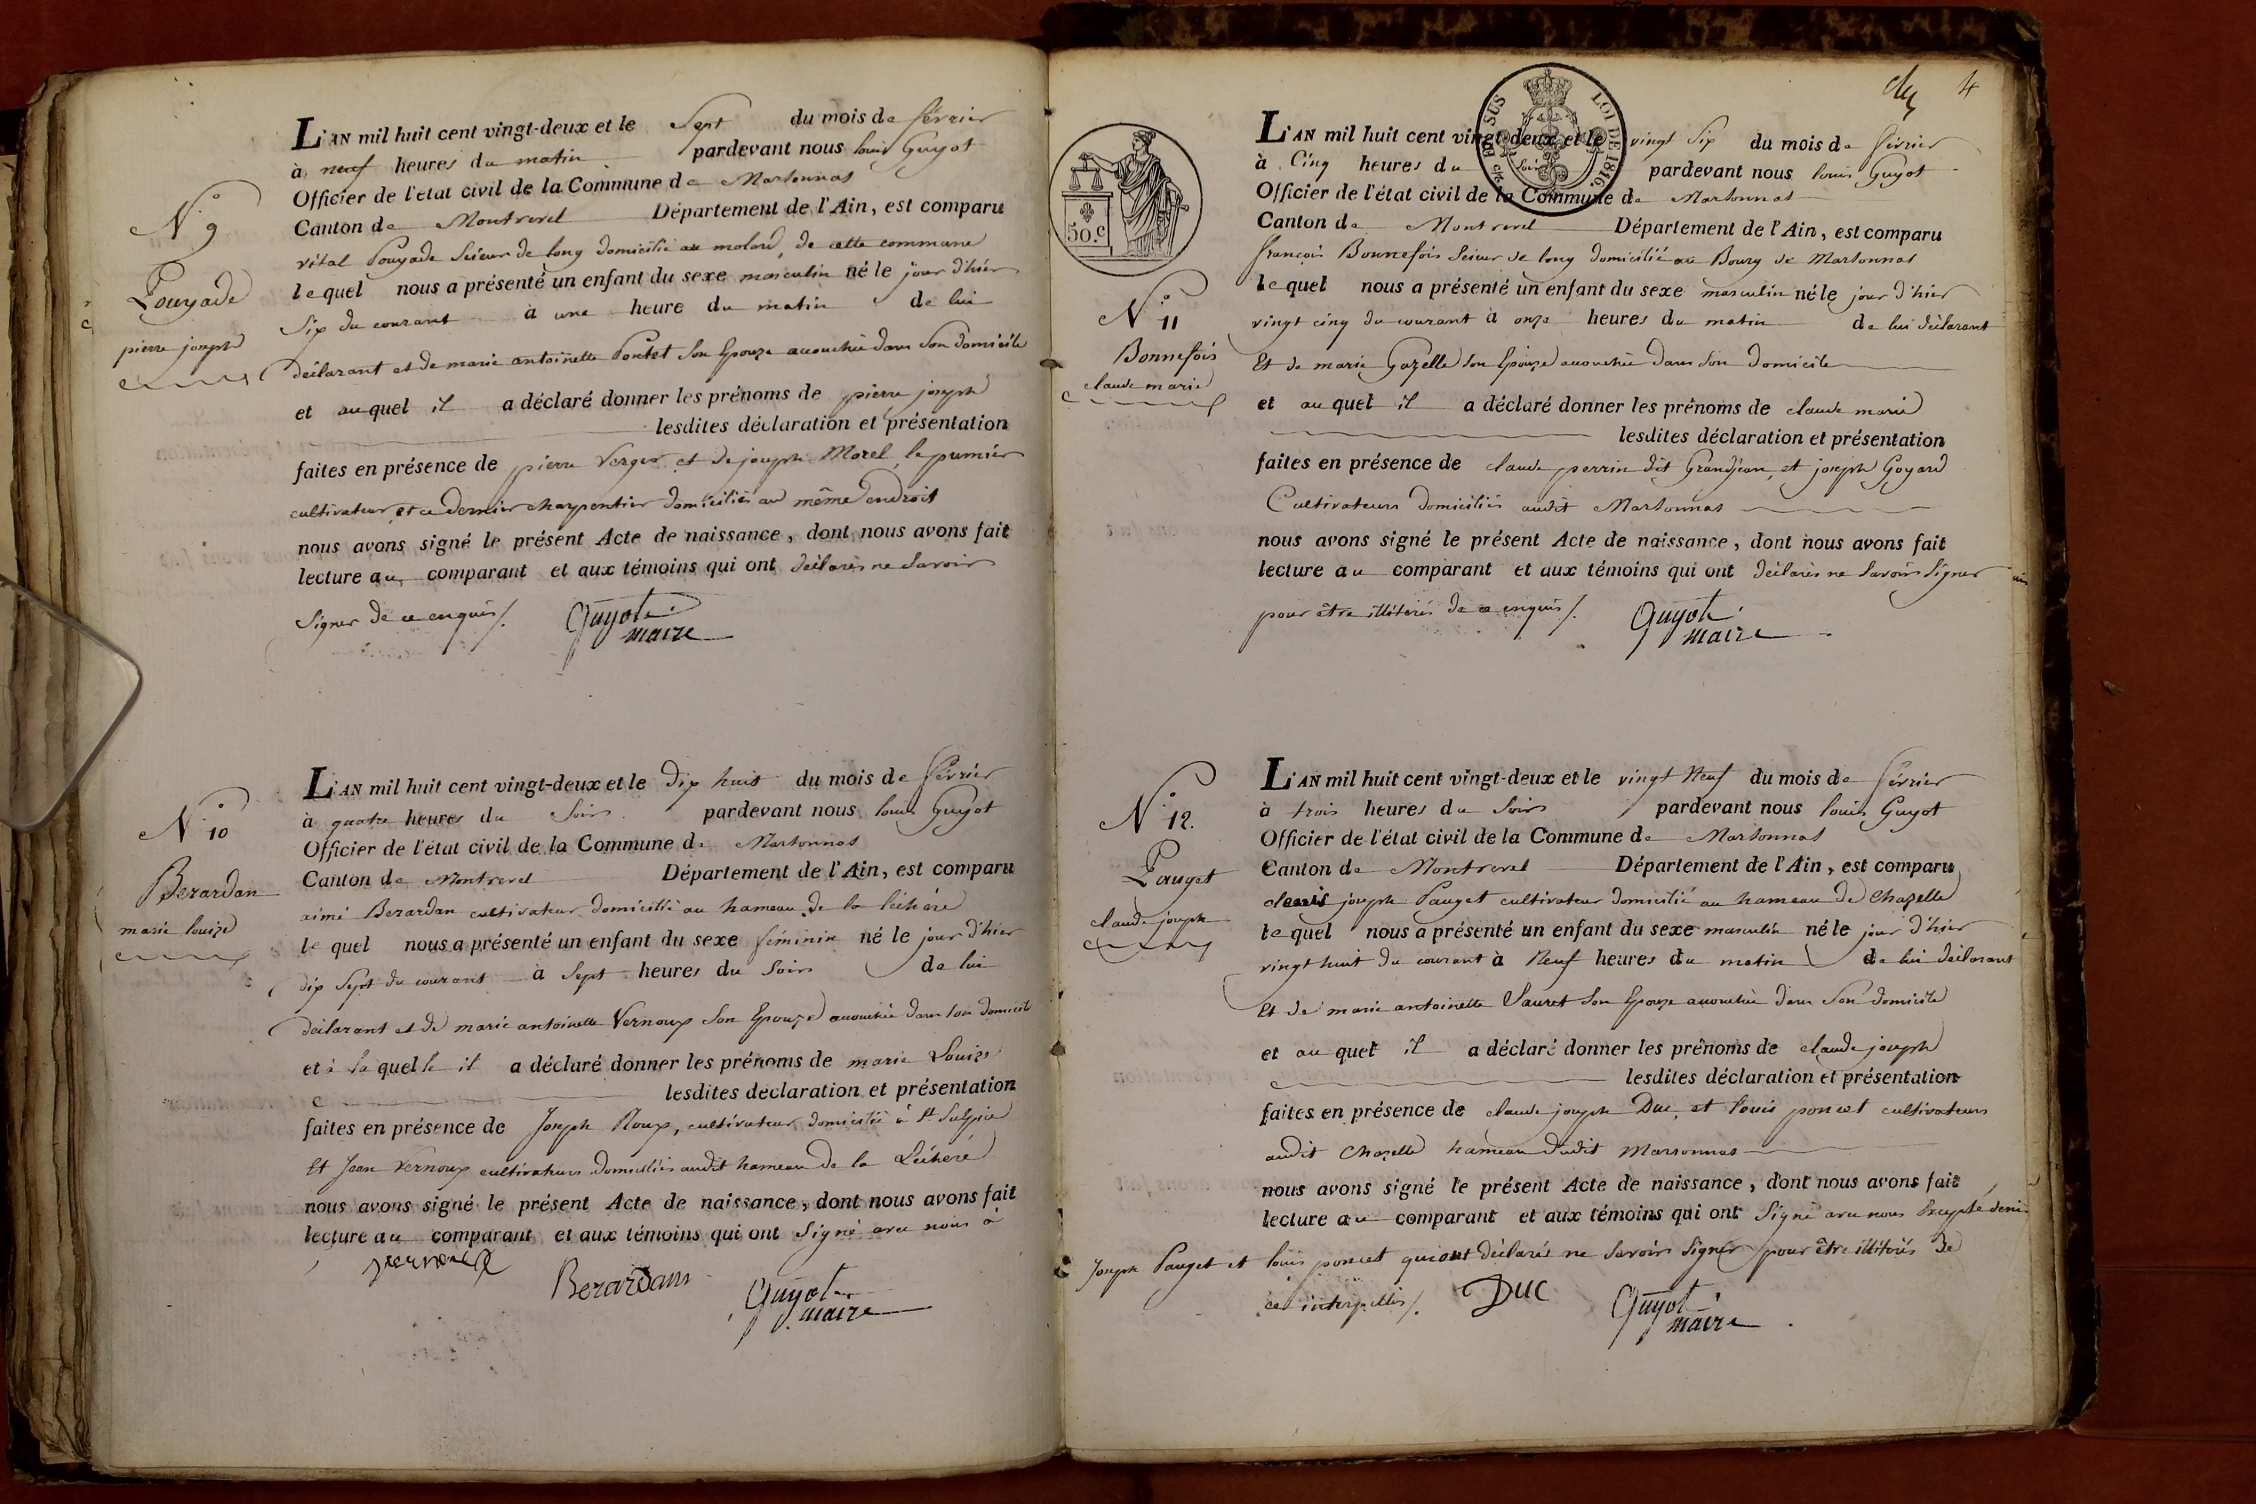 N.° 9
Pouyade
pierre joseph
L'AN mil huit cent vingt-deux et le Sept du mois de février
à neuf heures du matin pardevant nous louis Guyot
Officier de l'état civil de la Commune de Marsonnas
Canton de Montrevel Département de l'Ain, est comparu
vital Pouyade Scieur de long domicilié au molard, de cette commune
lequel nous a présenté un enfant du sexe masculin né le jour d'hier
Six du courant à une heure du matin de lui
déclarant et de marie antoinette Pontet Son Epouze accouchée dans Son domicile
et auquel il a déclaré donner les prénoms de pierre joseph
lesdites déclaration et présentation
faites en présence de pierre Verger et de joseph Morel, le premier
cultivateur, et ce dernier charpentier domiciliés au même endroit
nous avons signé le présent Acte de naissance, dont nous avons fait
lecture au comparant et aux témoins qui ont déclarés ne Savoir
Signer de ce enquis /.
Guyot
maire
N.° 10
Berardan
marie louize
L'AN mil huit cent vingt-deux et le dix huit du mois de février
à quatre heures du Soir pardevant nous louis Guyot
Officier de l'état civil de la Commune de Marsonnas
Canton de Montrevel Département de l'Ain, est comparu
aimé Berardan cultivateur domicilié au hameau de la léchére
lequel nous a présenté un enfant du sexe féminin né le jour d'hier
dix Sept du courant à Sept heures du Soir de lui
déclarant et de marie antoinette Vernoux Son Epouze accouchée dans Son domicile
et à laquelle il a déclaré donner les prénoms de marie Louize
lesdites déclaration et présentation
faites en présence de Joseph Roux, cultivateur domicilié à St Sulpice
Et Jean Vernoux cultivateurs domiciliés audit hameau de la Léchére
nous avons signé le présent Acte de naissance, dont nous avons fait
lecture au comparant et aux témoins qui ont Signé avec nous à
vernoux
Berardan
Guyot
maire
4
50.c
EN SUS
LOI DE 1816.
N.° 11
Bonnefois
claude marie
L'AN mil huit cent vingt-deux et le vingt Six du mois de février
à Cinq heures du Soir pardevant nous louis Guyot
Officier de l'état civil de la Commune de Marsonnas
Canton de Montrevel Département de l'Ain, est comparu
françois Bonnefois Scieur de long domicilié au Bourg de Marsonnas
lequel nous a présenté un enfant du sexe masculin né le jour d'hier
vingt cinq du courant à onze heures du matin de lui déclarant
Et de marie Gazelle Son Epouze accouchée dans Son domicile
et auquel il a déclaré donner les prénoms de claude marie
lesdites déclaration et présentation
faites en présence de claude perrin dit Grandjean, et joseph Goyard
Cultivateurs domiciliés audit Marsonnas
nous avons signé le présent Acte de naissance, dont nous avons fait
lecture au comparant et aux témoins qui ont déclarés ne Savoir Signer
pour être illitérés de ce enquis /.
Guyot
maire
N.° 12.
Pauget
claude joseph
L'AN mil huit cent vingt-deux et le vingt Neuf du mois de février
à trois heures du Soir pardevant nous louis Guyot
Officier de l'état civil de la Commune de Marsonnas
Canton de Montrevel Département de l'Ain, est comparu
denis joseph Pauget cultivateur domicilié au hameau de Chazelle
lequel nous a présenté un enfant du sexe masculin né le jour d'hier
vingt huit du courant à Neuf heures du matin de lui déclarant
Et de marie antoinette Sauret Son Epouze accouchée dans Son domicile
et auquel il a déclaré donner les prénoms de claude joseph
lesdites déclaration et présentation
faites en présence de claude joseph Duc, et louis poncet cultivateurs
audit Chazelle hameau dudit Marsonnas
nous avons signé le présent Acte de naissance, dont nous avons fait
lecture au comparant et aux témoins qui ont Signé avec nous Excepté denis
Joseph Pauget et louis poncet qui ont déclarés ne Savoir Signer pour être illitérés de
ce interpellés /.
Duc
Guyot
maire